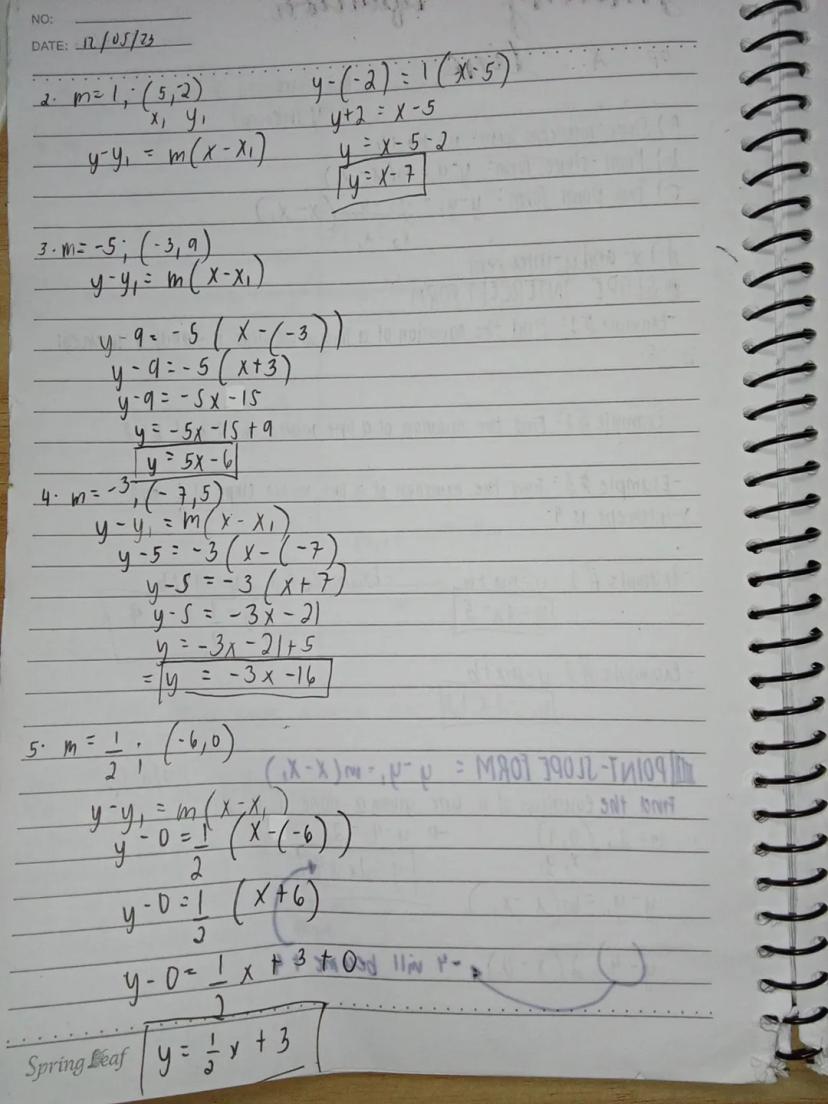 NO:
DATE: 12/05/23
2. m = 1, (5,-2)
x₁ y₁
y-y₁ = m(x-x₁)
y-(-2) = 1(x-5)
y+2 = x-5
y = x-5-2
y = x-7
3. m = -5; (-3, 9)
y-y₁ = m(x-x₁)
y-9 = -5(x-(-3))
y-9 = -5(x+3)
y-9 = -5x-15
y = -5x-15+9
y = 5x-6
4. m = -3, (-7, 5)
y-y₁ = m(x-x₁)
y-5 = -3(x-(-7)
y-5 = -3(x+7)
y-5 = -3x-21
y = -3x-21+5
= y = -3x-16
5. m = 1/2; (-6,0)
y-y₁ = m(x-x₁)
y-0 = 1/2 (x-(-6))
y-0 = 1/2 (x+6)
y-0 = 1/2 x + 3 + 0
y = 1/2 x + 3
Spring Leaf